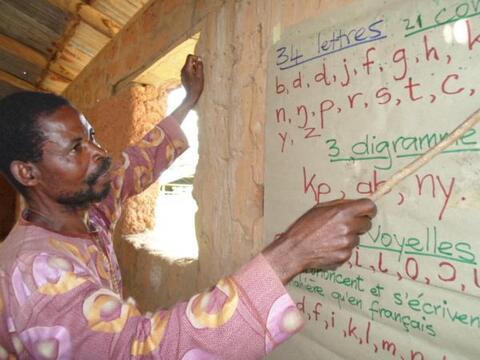 34 lettres
21 con
b, d, ɖ, j, f, g, h, k
n, ŋ, p, r, s, t, c,
y, z
3 digramme
kp, gb, ny.
voyelles
i, ɩ, o, ɔ,
noncent et s'écriven
nière qu'en français
d, f, i, k, l, m, n,